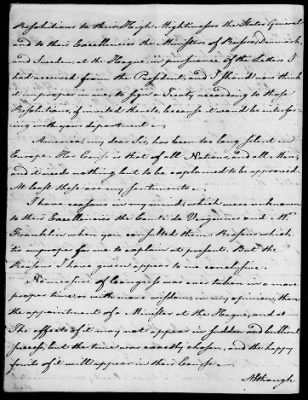 Resolutions to their High Mightinesses the States General
and to their Excellencies the Ministers of Russia, Denmark
and Sweden at the Hague, in pursuance of the Letters I
had received from the President, and I should now think
it improper in me, to sign a Treaty according to those
Resolutions, if invited thereto, because it would be interfer-
ing with your department.
America, my dear Sir, has been too long silent in
Europe. Her Cause is that of all Nations, and all Men;
and it needs nothing but to be explained to be approved.
At least these are my Sentiments.
I have reasons in my mind, which were unknown
to their Excellencies the Comte de Vergennes and Mr
Franklin when you consulted them. Reasons which
it is improper for me to explain at present. But the
Reasons I have given appear to me conclusive.
No measure of Congress was ever taken in a more
proper time, or with more wisdom, in my opinion, than
the appointment of a Minister at the Hague, and at
The effects of it may not appear in sudden and brilliant
success, but the time was exactly chosen, and the happy
fruits of it will appear in their Course.
Although